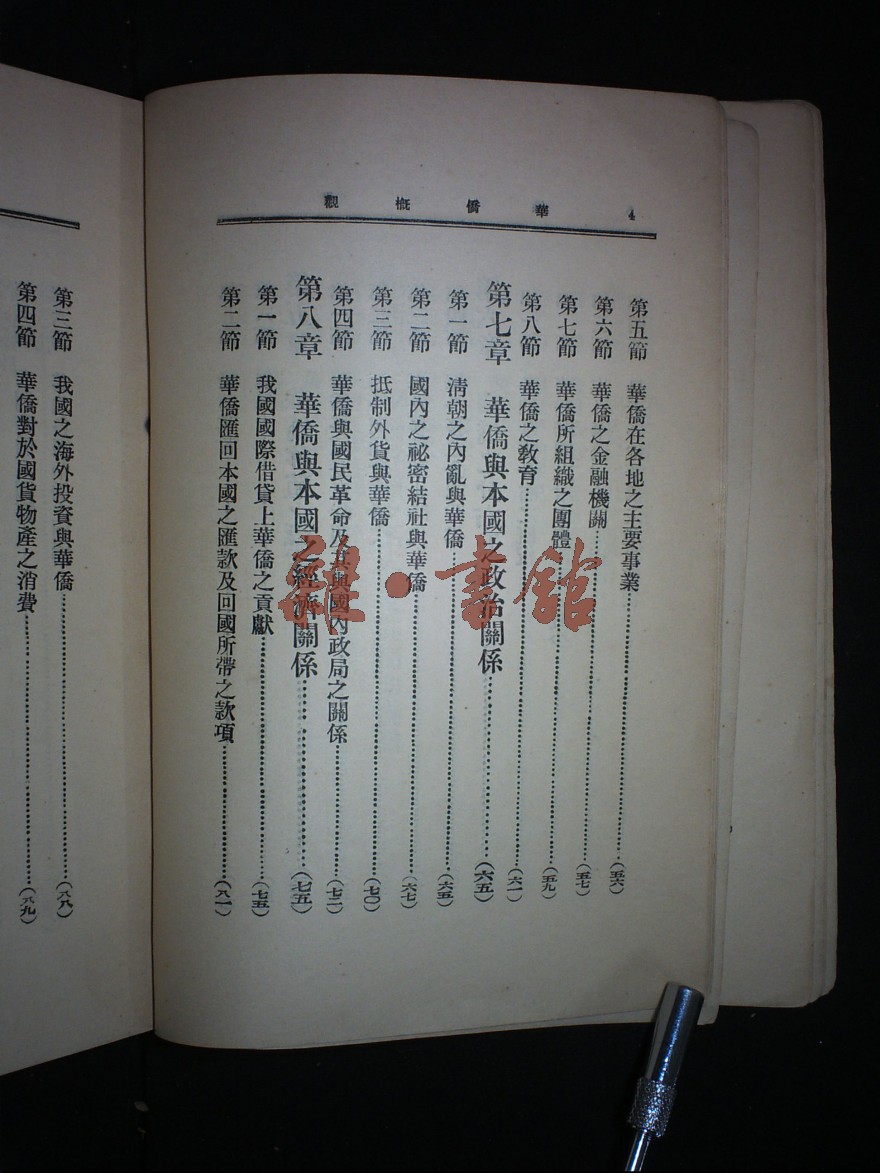 華僑概觀 4
第五節 華僑在各地之主要事業……(五六)
第六節 華僑之金融機關……(五七)
第七節 華僑所組織之團體……(五九)
第八節 華僑之教育……(六一)
第七章 華僑與本國之政治關係……(六五)
第一節 清朝之內亂與華僑……(六五)
第二節 國內之祕密結社與華僑……(六七)
第三節 抵制外貨與華僑……(七〇)
第四節 華僑與國民革命及其與國內政局之關係……(七二)
第八章 華僑與本國之經濟關係……(七五)
第一節 我國國際借貸上華僑之貢獻……(七五)
第二節 華僑匯回本國之匯款及回國所帶之款項……(八一)
第三節 我國之海外投資與華僑……(八八)
第四節 華僑對於國貨物產之消費……(八九)
雜·書館